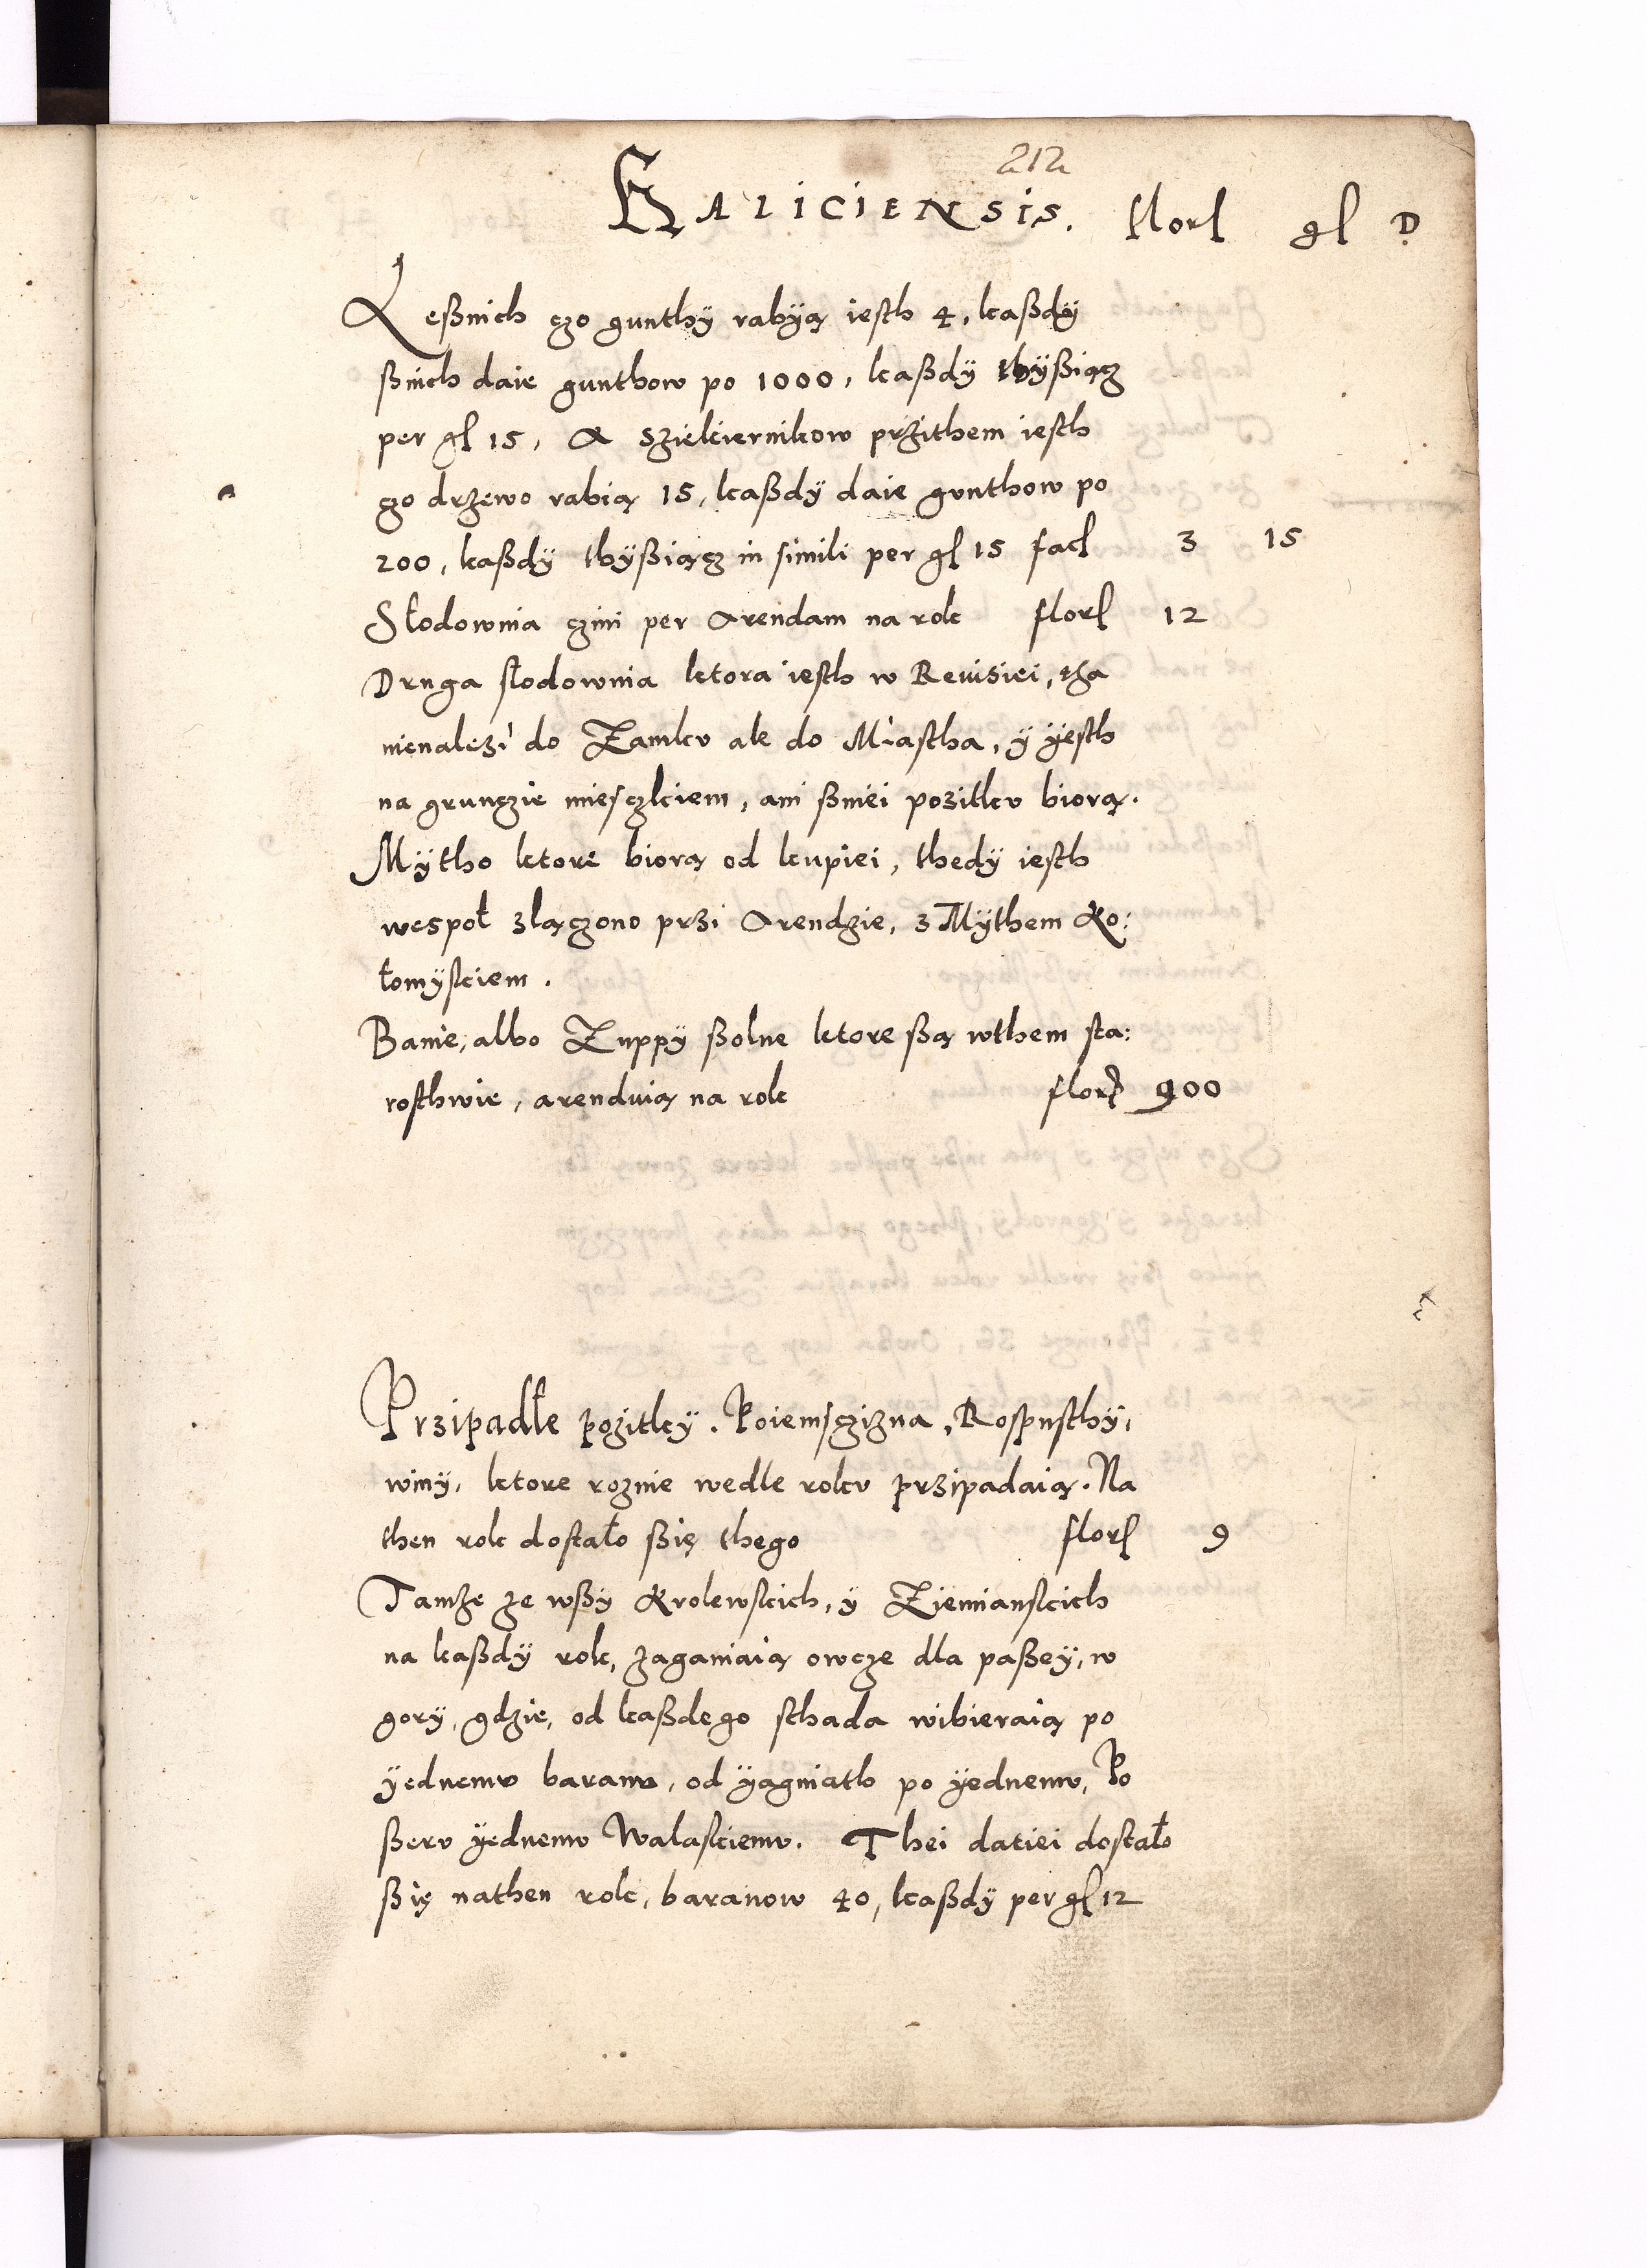 212
HALICIENSIS. florſ gſ D
Leßnich czo gunthÿ rabÿą iesth 4, kaßdÿ
ßnich daie gunthow po 1000, kaßdÿ thÿßiącz
per gſ 15, A Sziekiernikow przithem iesth
czo drzewo rabią 15, kaßdÿ daie gvnthow po
200, kaßdÿ thÿßiącz in simili per gſ 15 facſ 3 15
Słodownia czini per Arendam na rok florſ 12
Druga słodownia ktora iesth w Reuisiei, tha
nienalezi do Zamkv ale do Miastha, ÿ ÿesth
na grunczie miesczkiem, ani ßniei pozitkv biorą.
Mÿtho ktore biorą od kupiei, thedÿ iesth
wespoł zlączono przi Arendzie, z Mÿthem Ko:
łomÿskiem.
Banie, albo Zuppÿ ßolne ktore ßą wthem sta:
rosthwie, arenduią na rok florſ 900
Przipadłe pozitkÿ. Poiemsczizna, Rospusthÿ,
winÿ, ktore roznie wedle rokv przipadaią. Na
then rok dostało ßię thego florſ 9
Tamże ze wßÿ Krolewskich, ÿ Ziemianskich
na kaßdÿ rok, zaganiaią owcze dla paßeÿ, w
gorÿ, gdzie, od kaßdego sthada wibieraią po
ÿednemv baranv, od ÿagniath po ÿednemv, Po
ßerv ÿednemv Walaskiemv. Thei datiei dostało
ßię nathen rok, baranow 40, kaßdÿ per gſ 12